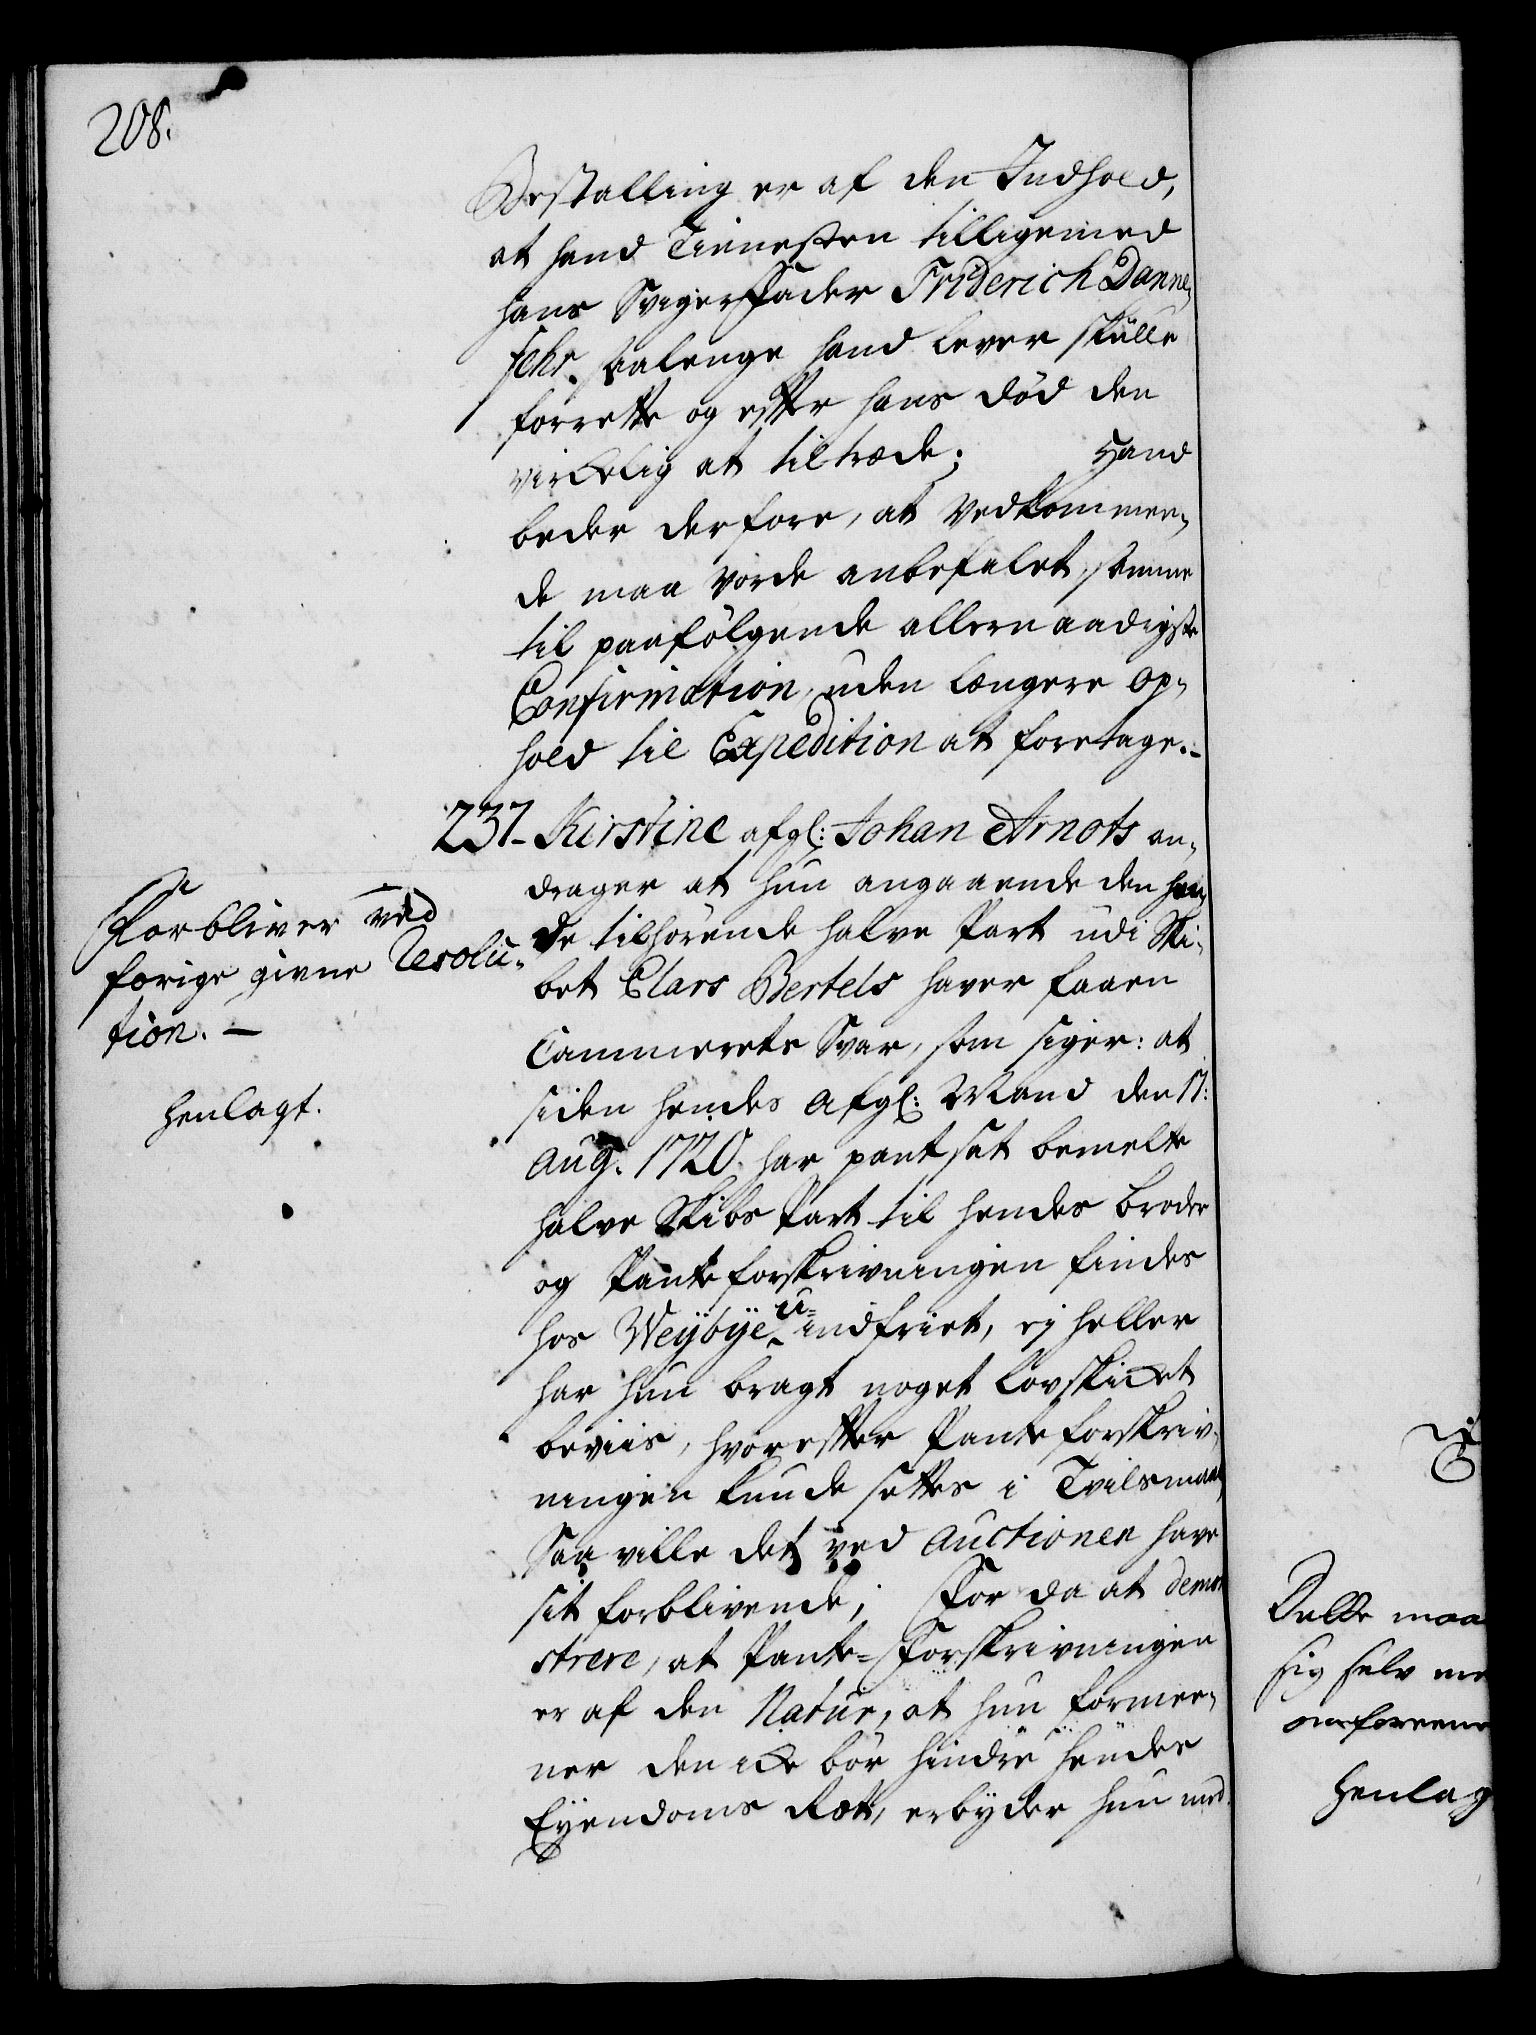 208.
Bestalling er af den Indhold,
at hand Tienesten tilligemed
hans Svigerfader Friderich Danne,
fehr, saalenge hand lever skulle
forrette og efter hans död den
virkelig at tiltræde; Hand
beder derfore, at Vedkommen,
de maa vorde anbefalet, samme
til paafölgende allernaadigste
Confirmation, uden længere op,
hold til Expedition at foretage.-
237- Kirstine afgl: Johan Arnots an,
drager at hun angaaende den hen,
de tilhörende halve Part udi Ski,
bet Clars Bertels haver faaen
Cammerets Svar, som siger: at
siden hendes afgl: Mand den 17:
Aug. 1720. har pantsat bemelte
halve Skibs Part til hendes broder
og Panteforskrivningen findes
hos Weÿbÿe u-indfriet, ej heller
har hun bragt noget lovskicket
beviis, hvorefter Panteforskriv,
ningen kunde settes i Tvilsmaal,
Saa ville det ved Auctionen have
sit forblivende; For da at demon
strere, at Pante-Forskrivningen
er af den Natur, at hun formee,
ner den icke bör hindre hendes
Eÿendoms Ret, erbÿder hun med
Forbliver ved
forige givne Resolu-
tion. -
henlagt.
Dette maa
sig selv me
omforeene
henlag